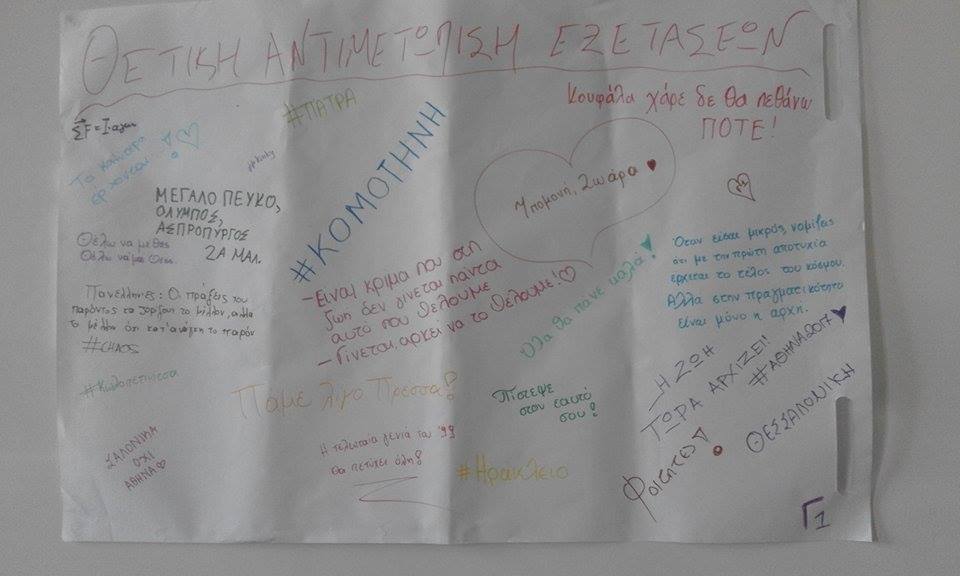 ΘΕΤΙΚΗ ΑΝΤΙΜΕΤΩΠΙΣΗ ΕΞΕΤΑΣΕΩΝ
#ΠΑΤΡΑ
Κουφάλα χάρε δε θα πεθάνω
ΠΟΤΕ!
Τα καλύτερα
έρχονται...!
#ΚΟΜΟΤΗΝΗ
Υπομονή, 2 ωάρα
ΜΕΓΑΛΟ ΠΕΥΚΟ,
ΟΛΥΜΠΟΣ,
ΑΣΠΡΟΠΥΡΓΟΣ
2Α ΜΑΛ.
Θέλω να με θες
Θέλω να με
Πανελλήνιες: Οι πράξεις του
παρόντος τα χτίζουν το μέλλον, αλλα
το μέλλον όχι κατ'ανάγκη το παρόν
#CHAOS
- Είναι κρίμα που στη
ζωή δεν γίνεται πάντα
αυτό που θέλουμε
- Γίνεται, αρκεί να το θέλουμε!
Όλα θα πάνε καλά!
Όταν είσαι μικρός, νομίζεις
ότι με την πρώτη αποτυχία
έρχεται το τέλος του κόσμου.
Αλλα στην πραγματικότητα
είναι μόνο η αρχη.
Πάμε λίγο Πρέσσα!
Πίστεψε
στον εαυτό
σου!
Η ΖΩΗ
ΤΩΡΑ ΑΡΧΙΖΕΙ!
#ΑΘΗΝΑ2017
ΘΕΣΣΑΛΟΝΙΚΗ
Φοιτητές!
ΣΑΛΟΝΙΚΑ
ΟΧΙ
ΑΘΗΝΑ
Η τελευταία γενιά του '99
θα πετύχει όλη!
#Ηράκλειο
Γ1